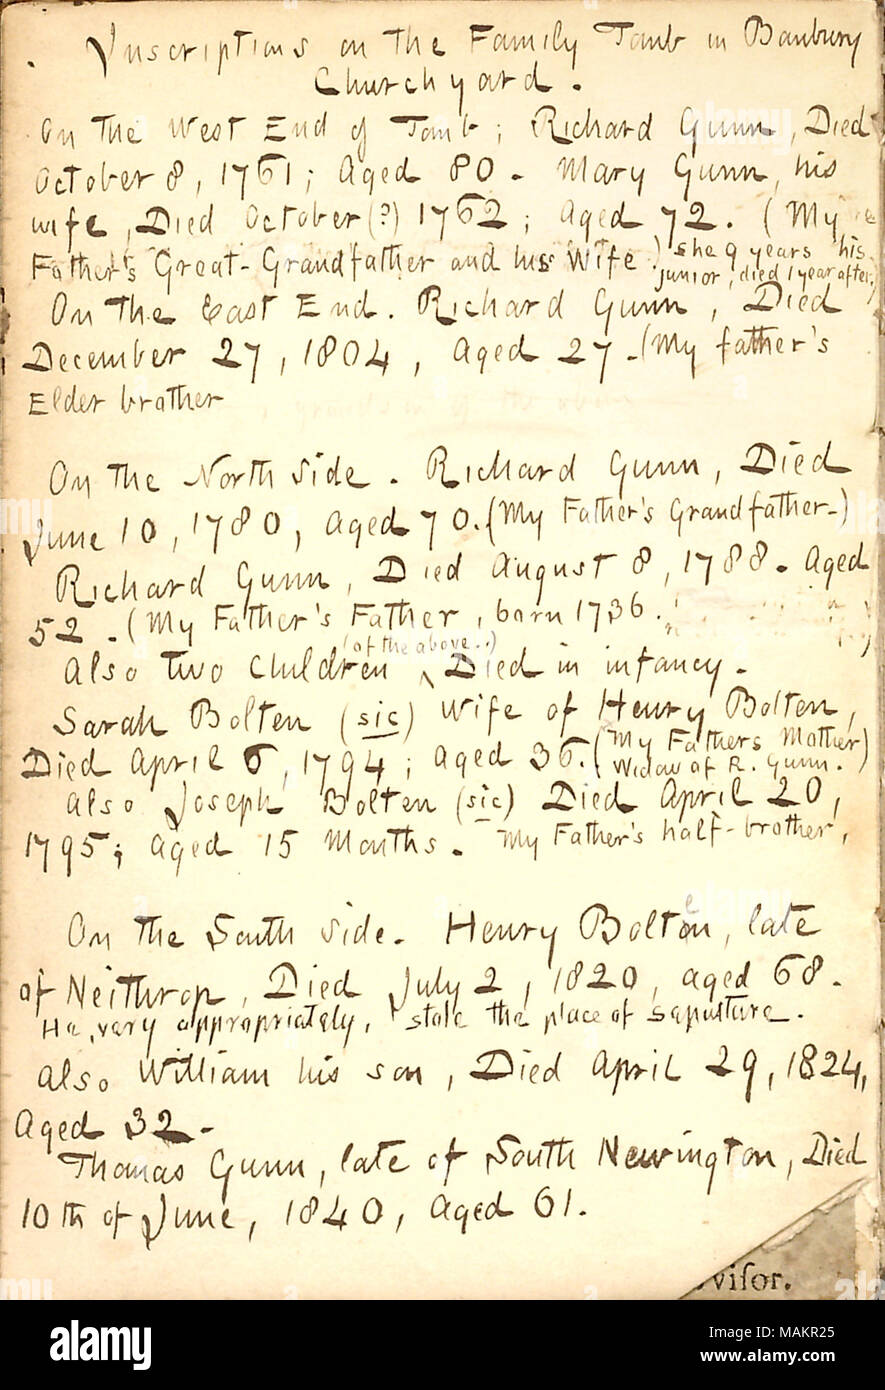 Inscriptions on the Family Tomb in Banbury
Churchyard.
On the West End of Tomb; Richard Gunn, Died
October 8, 1761; Aged 80. Mary Gunn, his
wife, Died October (?) 1762; Aged 72. (My
Father's Great-Grandfather and his Wife.) she 9 years his
junior, died 1 year after.)
On the East End. Richard Gunn, Died
December 27, 1804, Aged 27. (My father's
Elder brother
On the North Side. Richard Gunn, Died
June 10, 1780, Aged 70. (My Father's Grandfather.)
Richard Gunn, Died August 8, 1788. Aged
52. (My Father's Father, born 1736.
(of the above.)
Also two Children Died in infancy.
Sarah Bolten (sic) Wife of Henry Bolten,
Died April 6, 1794; Aged 36. (My Fathers Mother)
Widow of R. Gunn.
Also Joseph Bolten (sic) Died April 20,
1795; Aged 15 Months. My Father's half-brother,
On the South Side. Henry Bolten, late
of Neithrop, Died July 2, 1820, aged 68.
He, very appropriately, stole the place of sepulture.
Also William his son, Died April 29, 1824,
Aged 32.
Thomas Gunn, late of South Newington, Died
10th of June, 1840, Aged 61.
viſor.
alamy
Image ID: MAKR25
www.alamy.com